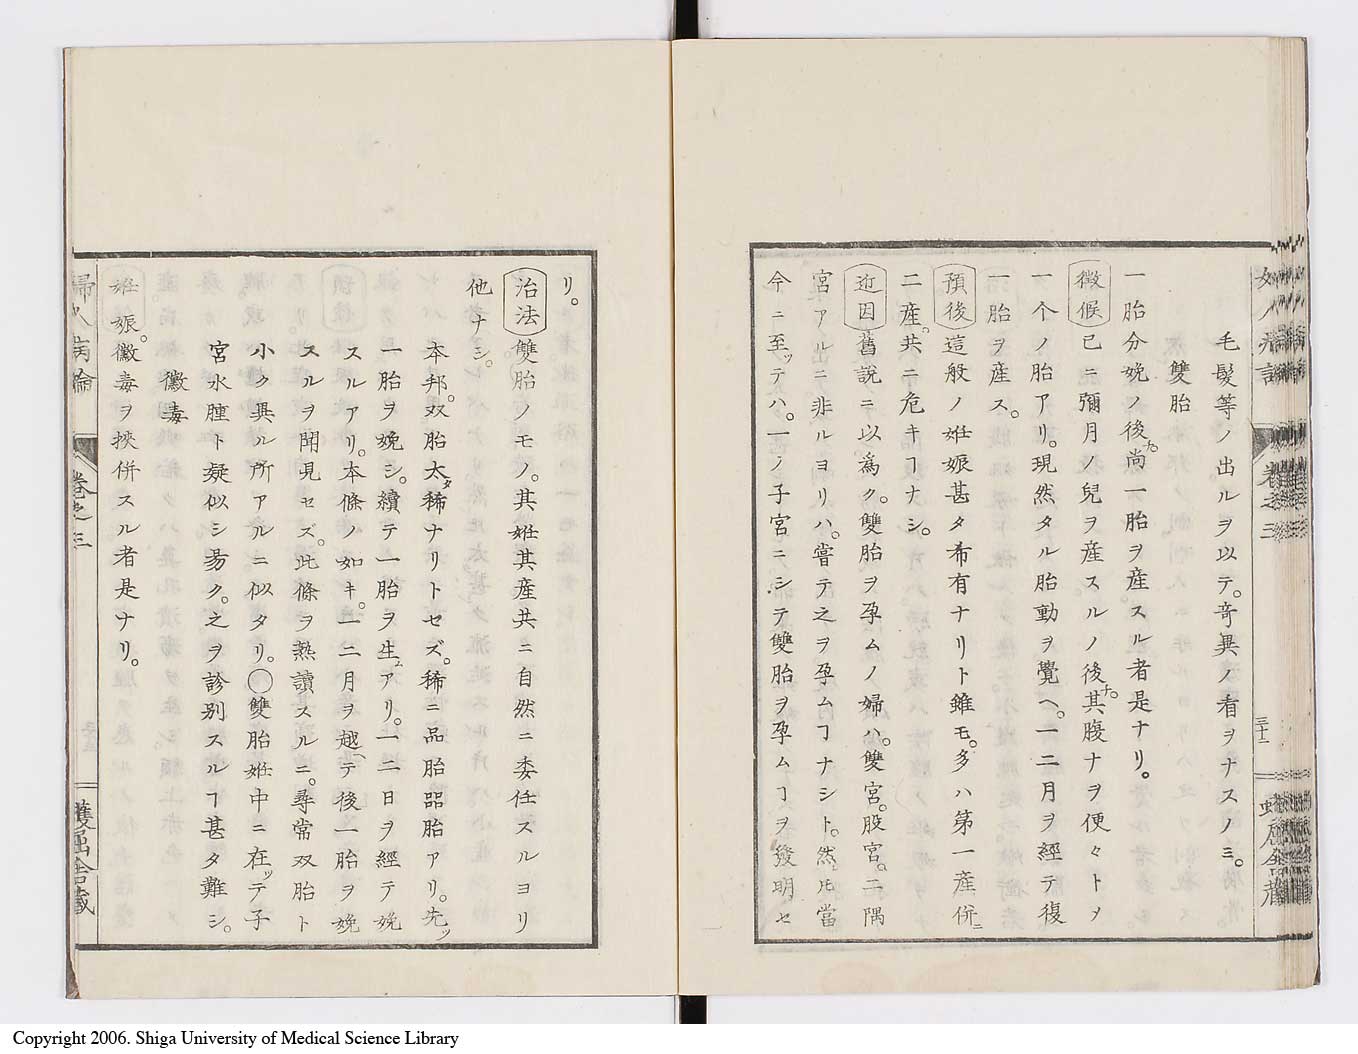 毛髮等ノ出ルヲ以テ。奇異ノ看ヲナスノミ。
雙胎
一胎分娩ノ後ナ。尚一胎ヲ産スル者是ナリ。
徴候 已ニ彌月ノ兒ヲ産スルノ後ナ。其腹ナヲ便々トメ
一ツ个ノ胎アリ。現然タル胎動ヲ覺ヘ。一二月ヲ經テ復
一胎ヲ産ス。
預後 這般ノ姙娠甚タ希有ナリト雖モ。多ハ第一産併ニ
二産。共ニ危キヿナシ。
近因 舊説ニ以爲ク。雙胎ヲ孕ムノ婦ハ。雙宮。股宮。二隅
宮アルニ非ルヨリハ。嘗テ之ヲ孕ムヿナシト。然ヒ𪜈當
今ニ至ッテハ。一ノ子宮ニシテ雙胎ヲ孕ムヿヲ發明セ
三十二
リ。
治法 雙胎ノモノ。其姙其産共ニ自然ニ委任スルヨリ
他ナシ。
本邦。双胎太タ稀ナリトセズ。稀ニ品胎㗊胎アリ。先ッ
一胎ヲ娩シ。續テ一胎ヲ生ュアリ。一二日ヲ經テ娩
スルアリ。本條ノ如キ。一二月ヲ越ヘテ後一胎ヲ娩
スルヲ聞見セズ。此條ヲ熟讀スルニ。尋常双胎ト
小ク異ル所アルニ似タリ。〇雙胎姙中ニ在ッテ子
宮水腫ト疑似シ易ク。之ヲ診别スルヿ甚タ難シ。
黴毒
姙娠。黴毒ヲ挾併スル者是ナリ。
婦人病論
卷之三
雙虫舎藏
Copyright 2006. Shiga University of Medical Science Library